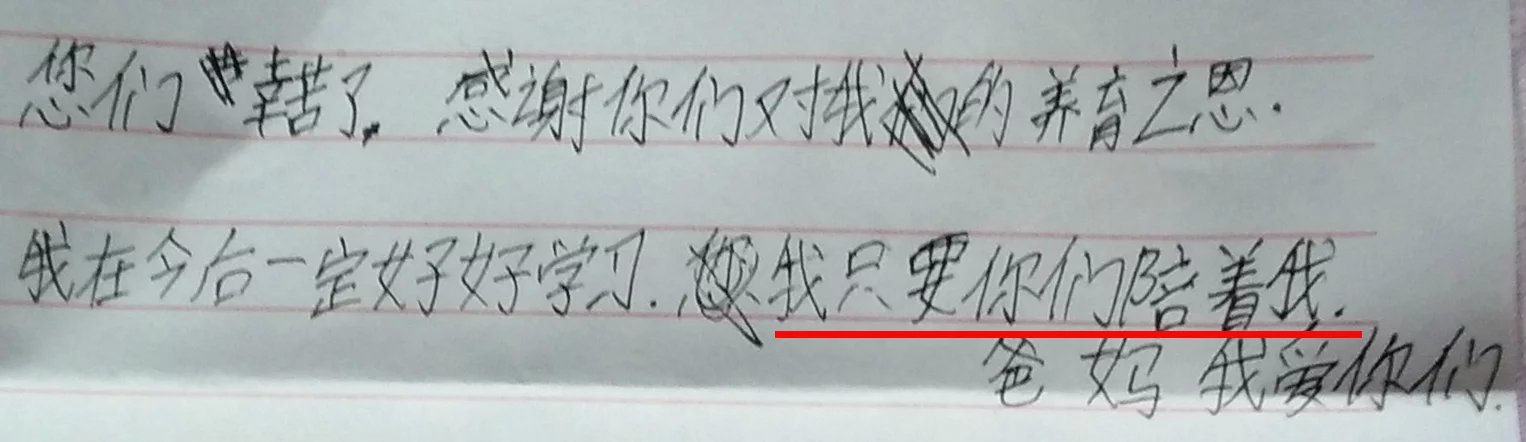 您们辛苦了。感谢你们对我的养育之恩.
我在今后一定好好学习.我只要你们陪着我.
爸妈我爱你们.